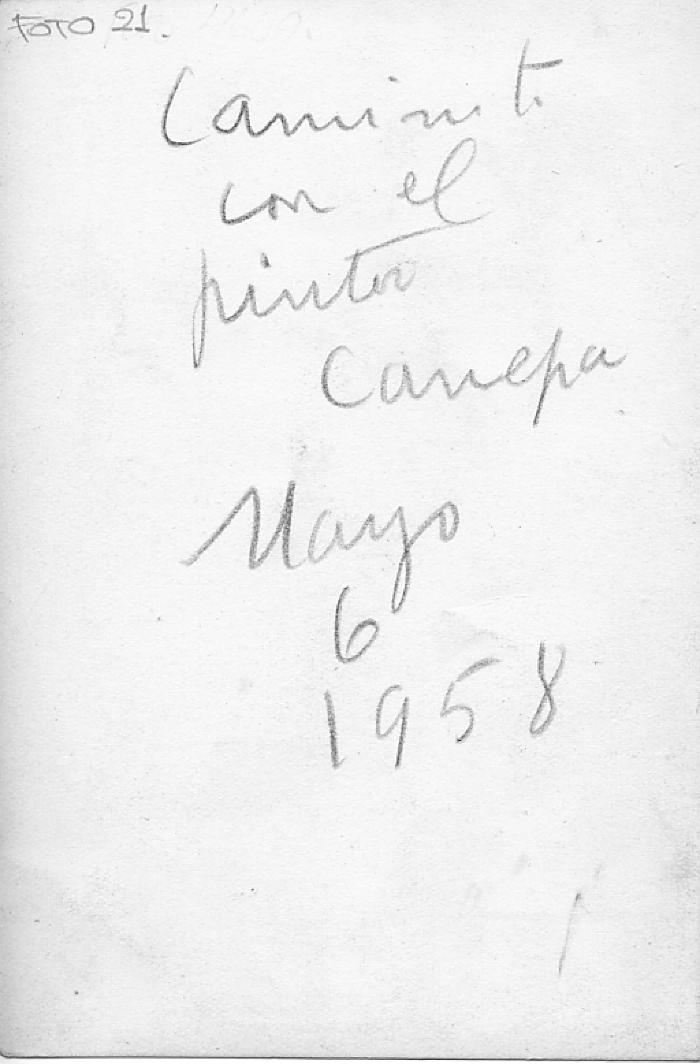 FOTO 21.
Caminito
con el
pintor
Canepa
Mayo
6
1958